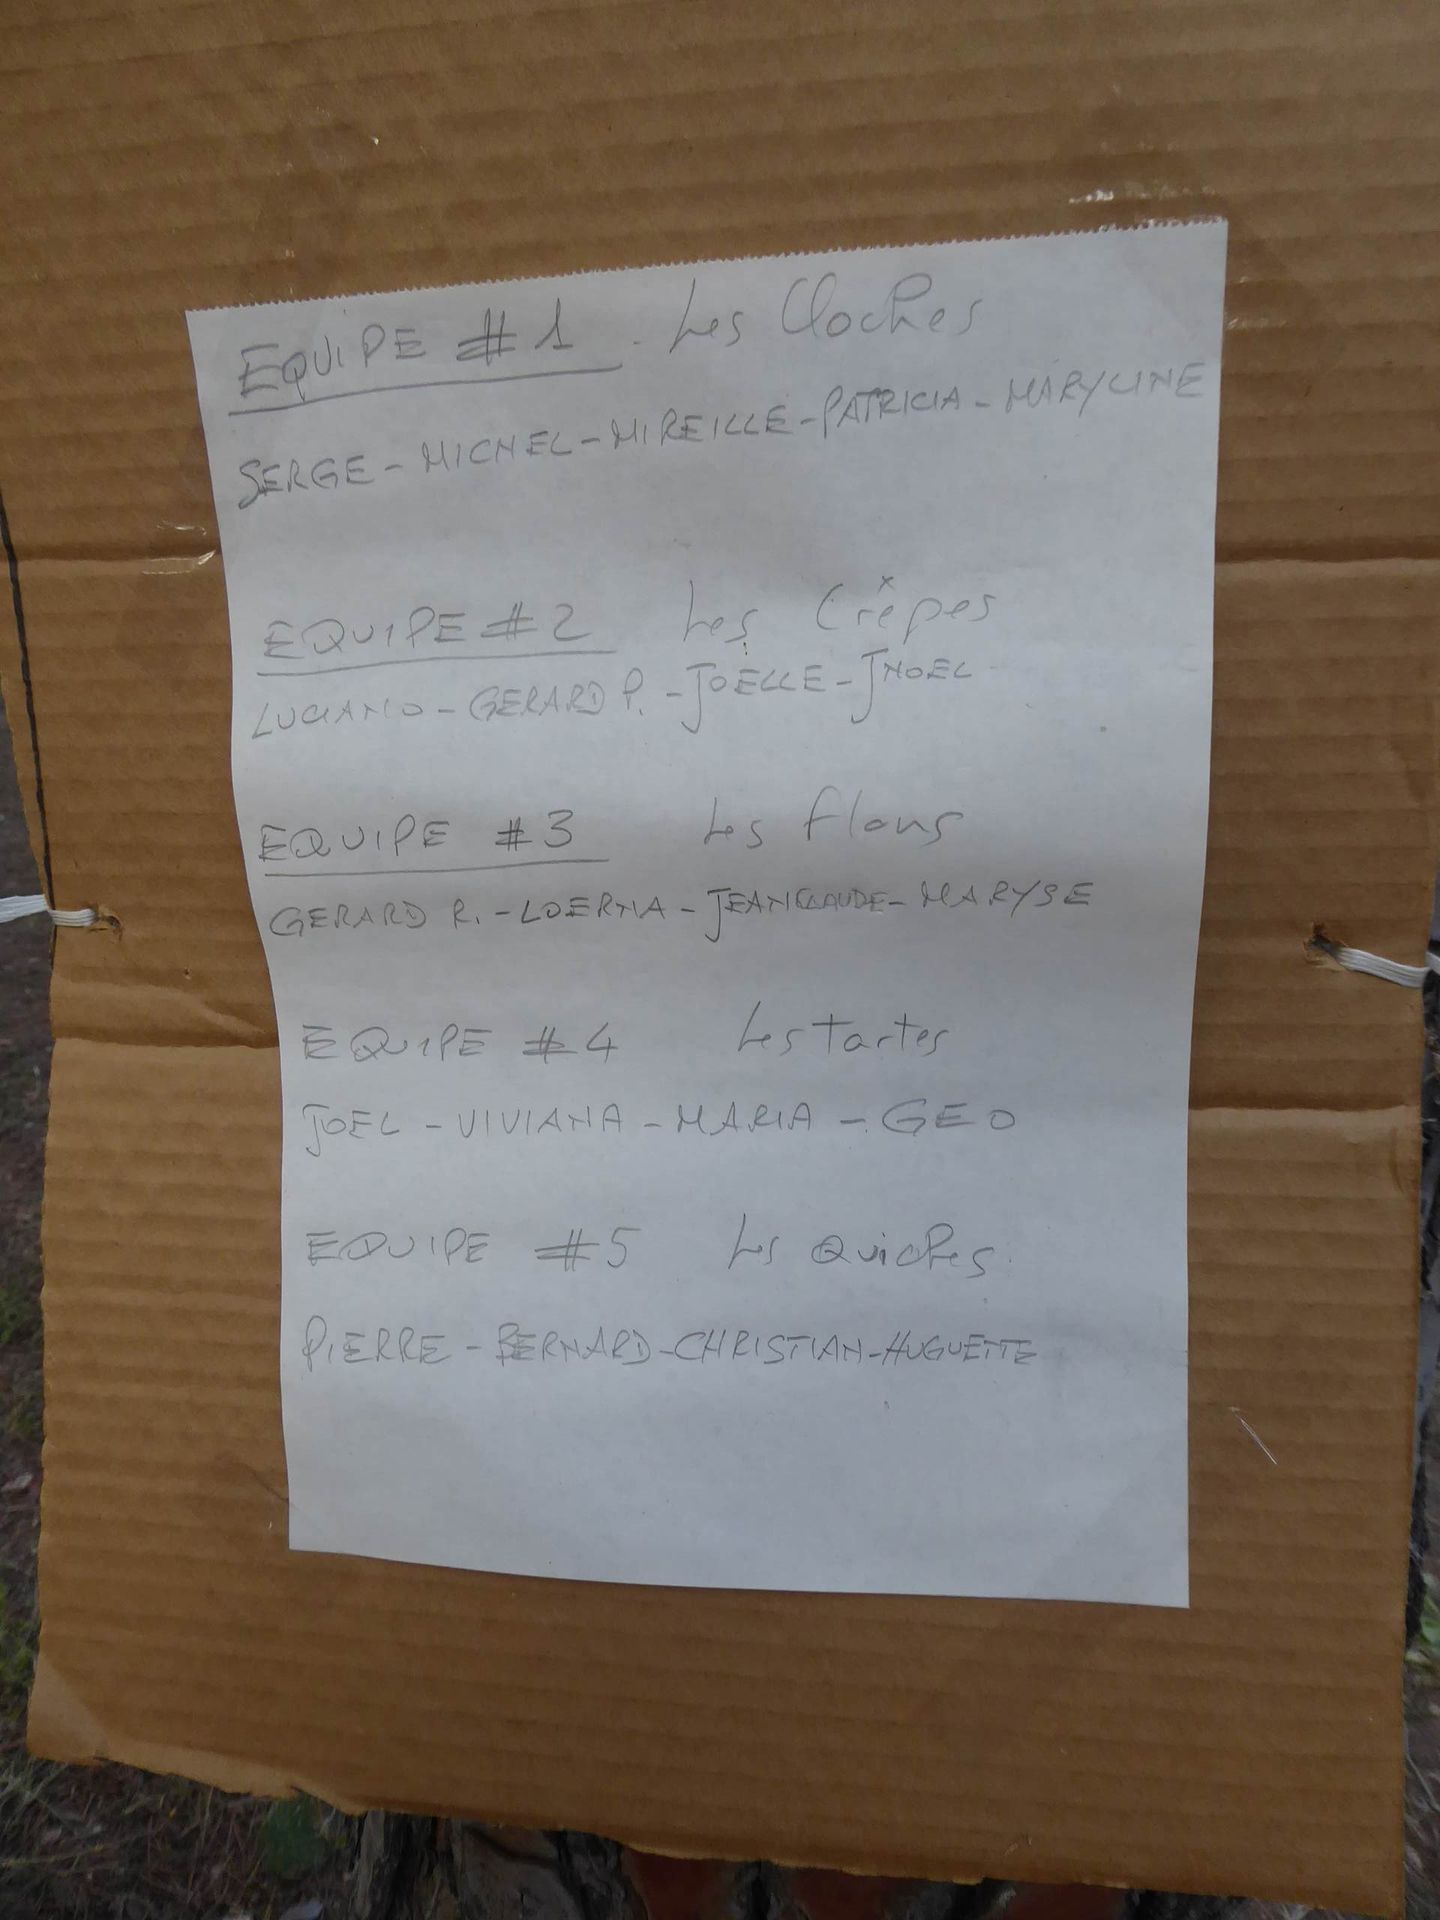 EQUIPE #1. Les Cloches
SERGE - MICHEL - MIREILLE - PATRICIA - MARYLINE
EQUIPE #2 Les Crêpes
LUCIANO - GERARD P. - JOELLE - JNOEL
EQUIPE #3 Les flans
GERARD R. - LOERNA - JEANCLAUDE - MARYSE
EQUIPE #4 Les Tartes
JOEL - VIVIANA - MARIA - GEO
EQUIPE #5 Les Quiches
PIERRE - BERNARD - CHRISTIAN - HUGUETTE